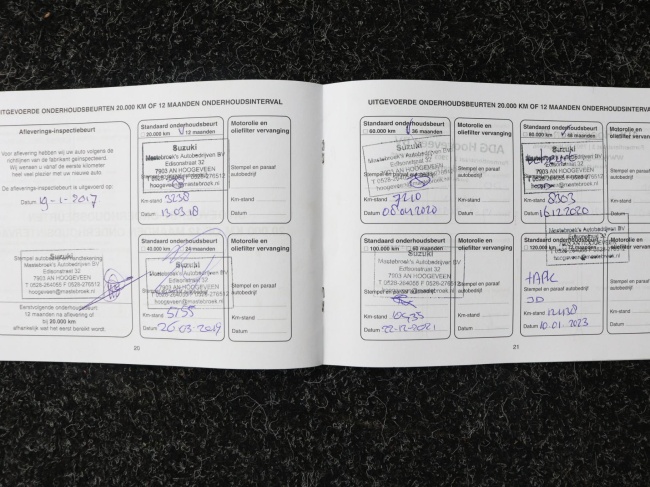 UITGEVOERDE ONDERHOUDSBEURTEN 20.000 KM OF 12 MAANDEN ONDERHOUDSINTERVAL
Afleverings-inspectiebeurt
Voor aflevering hebben wij uw auto volgens de
richtlijnen van de fabrikant geïnspecteerd.
Wij wensen u vanaf de eerste kilometer
heel veel plezier met uw nieuwe auto.
De afleverings-inspectiebeurt is uitgevoerd op:
Datum 19-1-2017
Suzuki
Mastebroek's Autobedrijven BV
Edisonstraat 32
7903 AN HOOGEVEEN
T 0528-264055 F 0528-276512
hoogeveen@mastebroek.nl
Eerstvolgende onderhoudsbeurt
12 maanden na aflevering of
bij 20.000 km
afhankelijk wat het eerst bereikt wordt.
Standaard onderhoudsbeurt
20.000 km 12 maanden
Suzuki
Mastebroek's Autobedrijven BV
Edisonstraat 32
7903 AN HOOGEVEEN
T 0528-264055 F 0528-276512
hoogeveen@mastebroek.nl
Km-stand 3238
Datum 13.03.18
Motorolie en
oliefilter vervanging
Stempel en paraaf
autobedrijf
Km-stand
Datum
Standaard onderhoudsbeurt
40.000 km 24 maanden
Mastebroek's Autobedrijven BV
Edisonstraat 32
7903 AN HOOGEVEEN
T 0528-264055 F 0528-276512
hoogeveen@mastebroek.nl
Km-stand 5155
Datum 20-03-2019
Motorolie en
oliefilter vervanging
Stempel en paraaf
autobedrijf
Km-stand
Datum
20
UITGEVOERDE ONDERHOUDSBEURTEN 20.000 KM OF 12 MAANDEN ONDERHOUDSINTERVAL
Standaard onderhoudsbeurt
60.000 km 36 maanden
Suzuki
Mastebroek's Autobedrijven BV
Edisonstraat 32
7903 AN HOOGEVEEN
T 0528-264055 F 0528-276512
hoogeveen@mastebroek.nl
Km-stand 7210
Datum 08 04 2020
Motorolie en
oliefilter vervanging
Stempel en paraaf
autobedrijf
Km-stand
Datum
Standaard onderhoudsbeurt
80.000 km 48 maanden
Suzuki
Edisonstraat 32
7903 AN HOOGEVEEN
hoogeveen@mastebroek.nl
Km-stand 8303
Datum 16.12.2020
Motorolie
oliefilter ver
Stempel en
autobedrijf
Km-stand
Datum
Standaard onderhoudsbeurt
100.000 km 60 maanden
Suzuki
Mastebroek's Autobedrijven BV
Edisonstraat 32
7903 AN HOOGEVEEN
T 0528-264055 F 0528-276512
hoogeveen@mastebroek.nl
Stempel en paraaf
autobedrijf
Km-stand
Datum 22-12-2021
Motorolie en
oliefilter vervanging
Stempel en paraaf
autobedrijf
Km-stand
Datum
Mastebroek's Autobedrijven BV
120.000 km
7903 AN HOOGEVEEN
hoogeveen@mastebroek.nl
Km-stand 12438
Datum 10.01.2023
Stempel en
autobedrijf
Km-stand
Datum
21